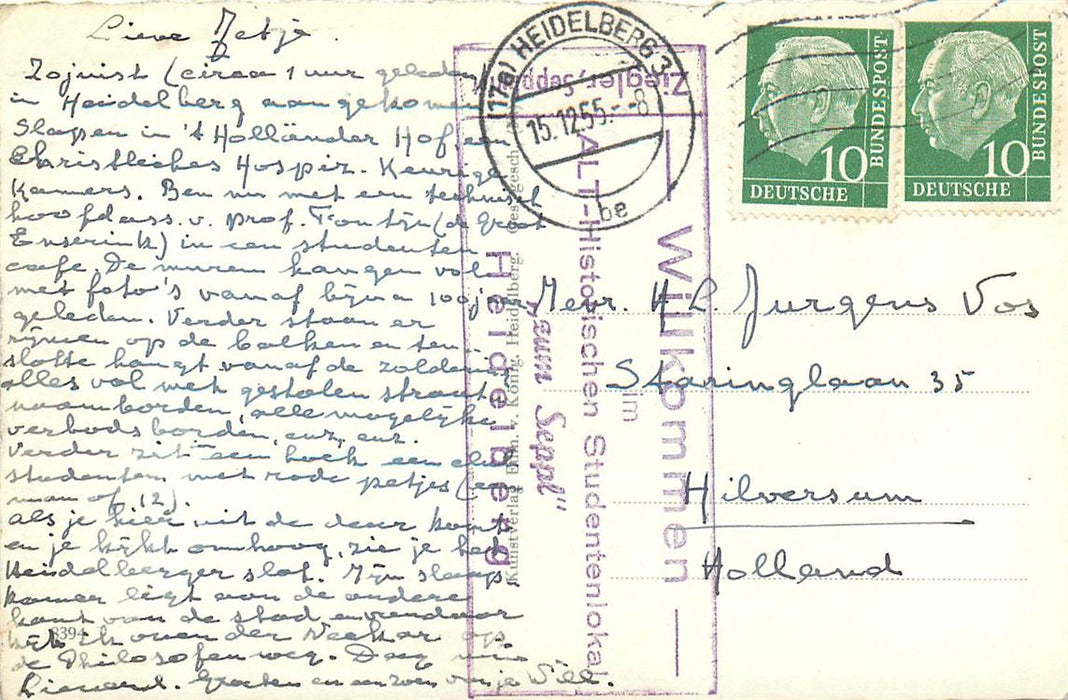 Lieve Jetje.
Zojuist (circa 1 uur geleden)
in Heidelberg aangekomen
Slapen in 't Holländer Hof, een
Christliches Hospiz. Keurige
Kamers. Ben nu met een
hoofdass. v. Prof. Fontijn (de Groot
Enserink) in een studenten
cafe. De muren hangen vol
met foto's vanaf bijna 100 jaar
geleden. Verder staan er
rijmen op de balken en ten
slotte hangt vanaf de zoldering
alles vol met gestolen straat
naamborden, alle mogelijke
verbodsborden, enz, enz.
Verder zit een hoek een club
studenten met rode petjes (een
man of 12).
als je hier uit de deur komt
en je kijkt omhoog, zie je het
Heidelberger slot. Mijn slaap
kamer ligt aan de andere
kant van de stad en vandaar
kijk ik over der Neckar op
de Philosofenweg. Dag mijn
Lieverd. Groeten en een zoen van je Will.
3394
Kunstverlag Edm. v. König, Heidelberg. Ges. gesch.
(17a) HEIDELBERG 3
15.12.55.-8
be
Ziegler-Seppl
Willkommen
im
ALT-Historischen Studentenlokal
"zum Seppl"
Heidelberg
DEUTSCHE BUNDESPOST 10
DEUTSCHE BUNDESPOST 10
Mevr. H.L. Jurgens Vos
Staringlaan 35
Hilversum
Holland